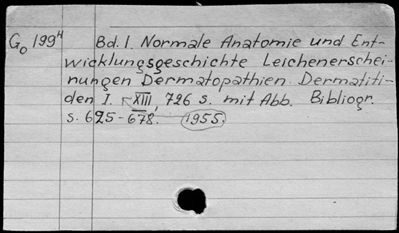 Go 199⁴ Bd. I. Normale Anatomie und Ent-
wicklungsgeschichte Leichenerschei-
nungen Dermatopathien. Dermatiti-
den I. XIII, 726 s. mit Abb. Bibliogr.
s. 625-678. 1955.